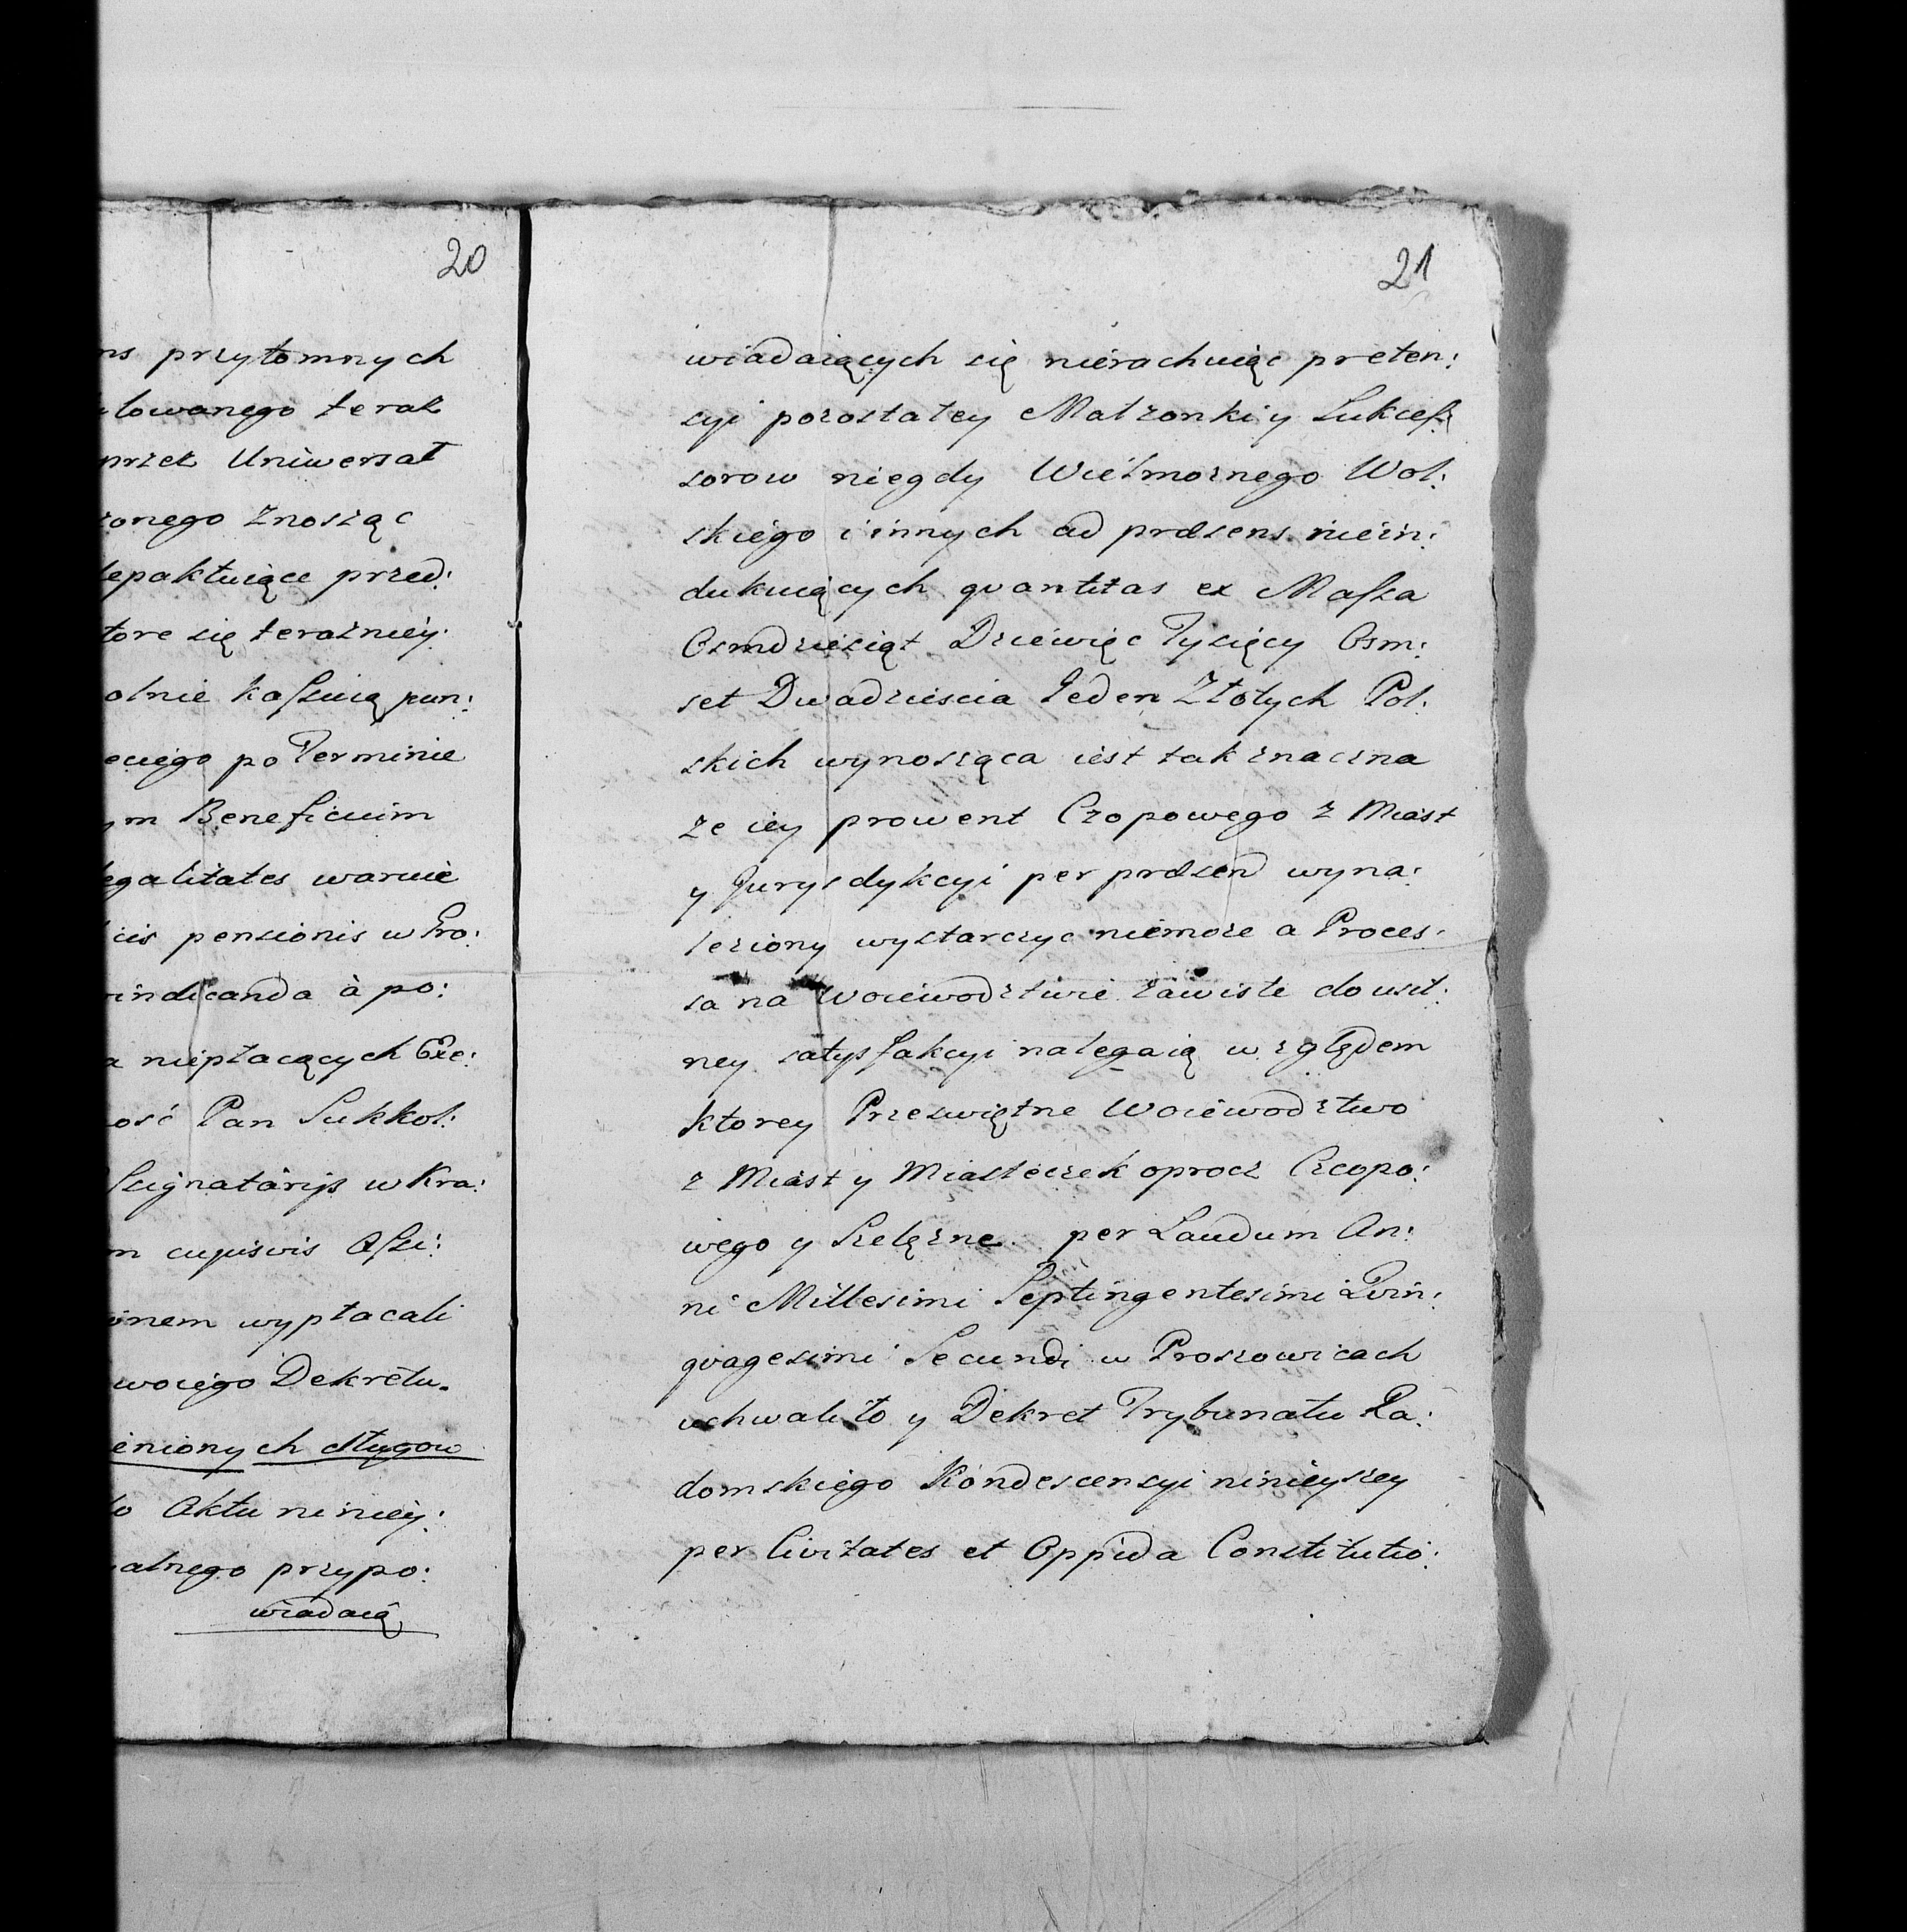 20
ns przytomnych
lowanego teraz
przez Uniwersał
zonego Znosząc
depaktuiące przed:
tore się terazniey:
olnie kasſuią pun:
eciego po Terminie
ym Beneficium
egalitates warnie
cis pensionis w Pro:
vindicanda à po:
a niepłacących Exe:
ość Pan Sukkol:
ſsignatarijs w Kra:
m cujusvis Aſsi:
onem wypłacali
woiego Dekretu.
enionych długow
do Aktu niniey:
alnego przypo:
wiadaią
21
wiadaiących się nierachuiąc preten:
syi pozostałey Małzonki y Sukceſ:
sorow niegdy Wielmoznego Wol:
skiego i innych ad præsens niein:
dukuiących qvantitas ex Maſsa
Osmdziesiąt Dziewięc Tysięcy Osm:
set Dwadziescia Jeden Złotych Pol:
skich wynosząca iest tak znaczna
ze iey prowent Czopowego z Miast
y Jurysdykcyi per præsens wyna:
leziony wystarczyc niemoze a Proces:
sa na Woiewodztwie zawisłe do usil:
ney satysfakcyi nalegaią względem
ktorey Przeswiętne Woiewodztwo
z Miast y Miasteczek oprocz Czopo:
wego y Szelęzne per Laudum An:
ni Millesimi Septingentesimi Qvin:
qvagesimi Secundi w Proszowicach
uchwaliło y Dekret Trybunału Ra:
domskiego Kondescensyi ninieyszey
per Civitates et Oppida Constitutio: